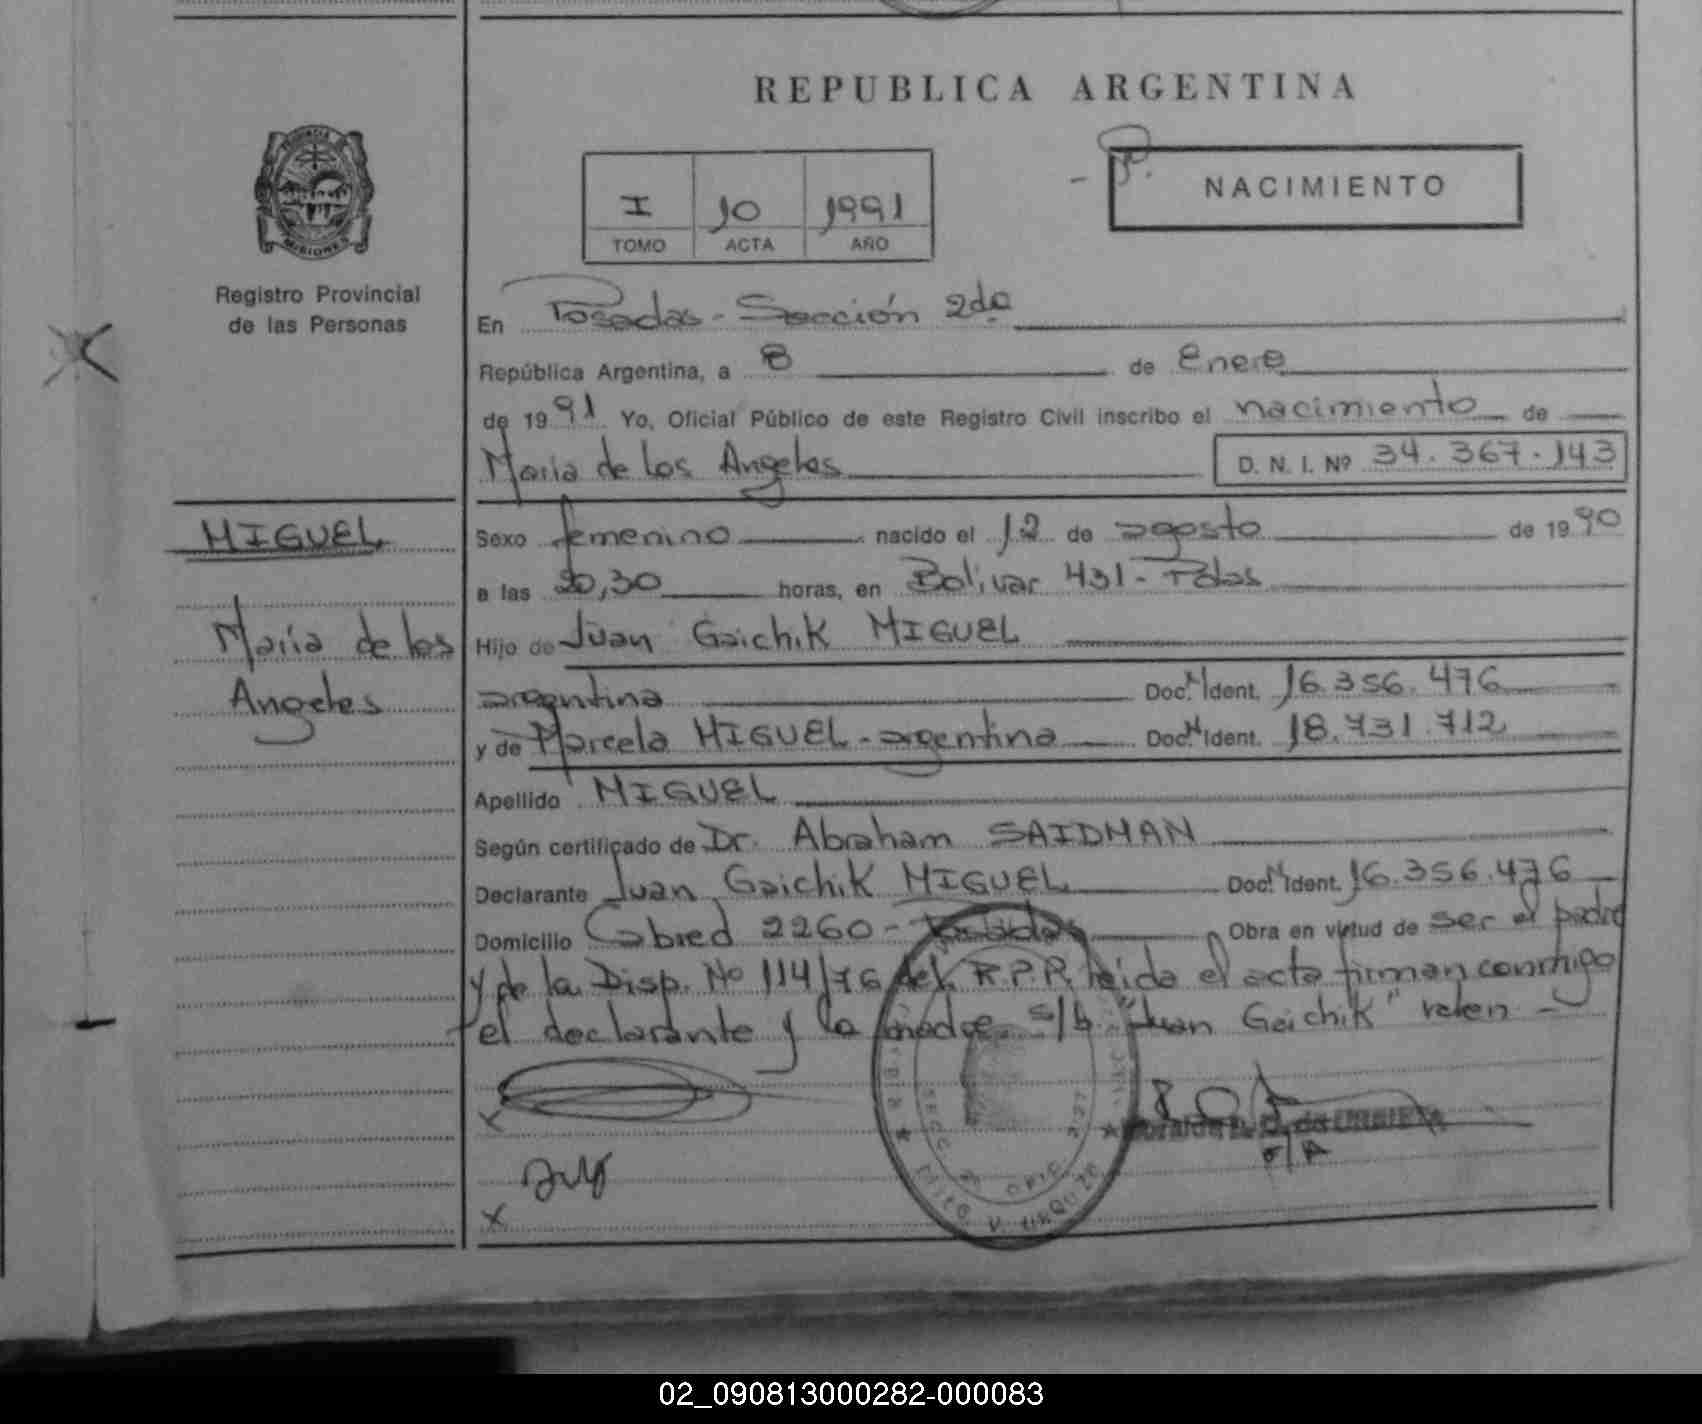 REPUBLICA ARGENTINA
PROVINCIA
MISIONES
Registro Provincial
de las Personas
I 10 1991
TOMO ACTA AÑO
NACIMIENTO
En Posadas - Sección 2da
República Argentina, a 8 de Enero
de 1991 Yo, Oficial Público de este Registro Civil inscribo el nacimiento de
María de los Angeles D. N. I. Nº 34.367.143
MIGUEL
María de los
Angeles
Sexo femenino nacido el 12 de agosto de 1990
a las 20,30 horas, en Bolivar 431 - Pdas
Hijo de Juan Gaichik MIGUEL
argentina Doc. Ident. 16.356.476
y de Marcela MIGUEL - argentina Doc. Ident. 18.731.712
Apellido MIGUEL
Según certificado de Dr. Abraham SAIDMAN
Declarante Juan Gaichik MIGUEL Doc. Ident. 16.356.476
Domicilio Cabred 2260 - Posadas Obra en virtud de ser el padre
y de la Disp. Nº 114/76 del R.P.P. leida el acta firman conmigo
el declarante y la madre. s/b. "Juan Gaichik" valen -
02_090813000282-000083